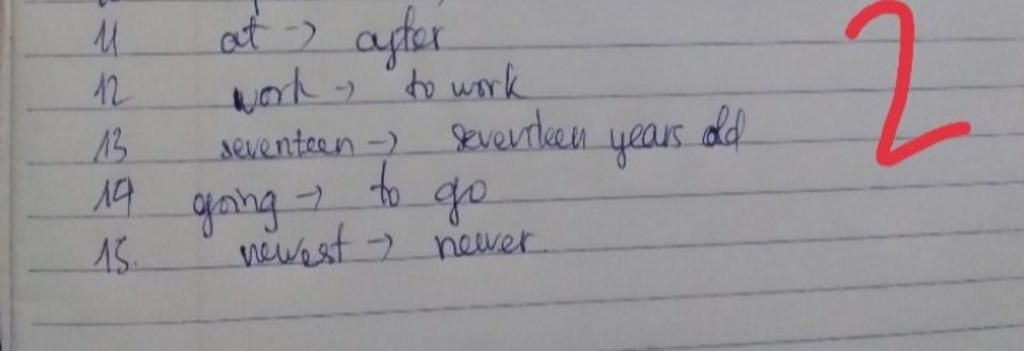 11 at → after
12 work → to work
13 seventeen → seventeen years old
14 going → to go
15. newest → newer
2